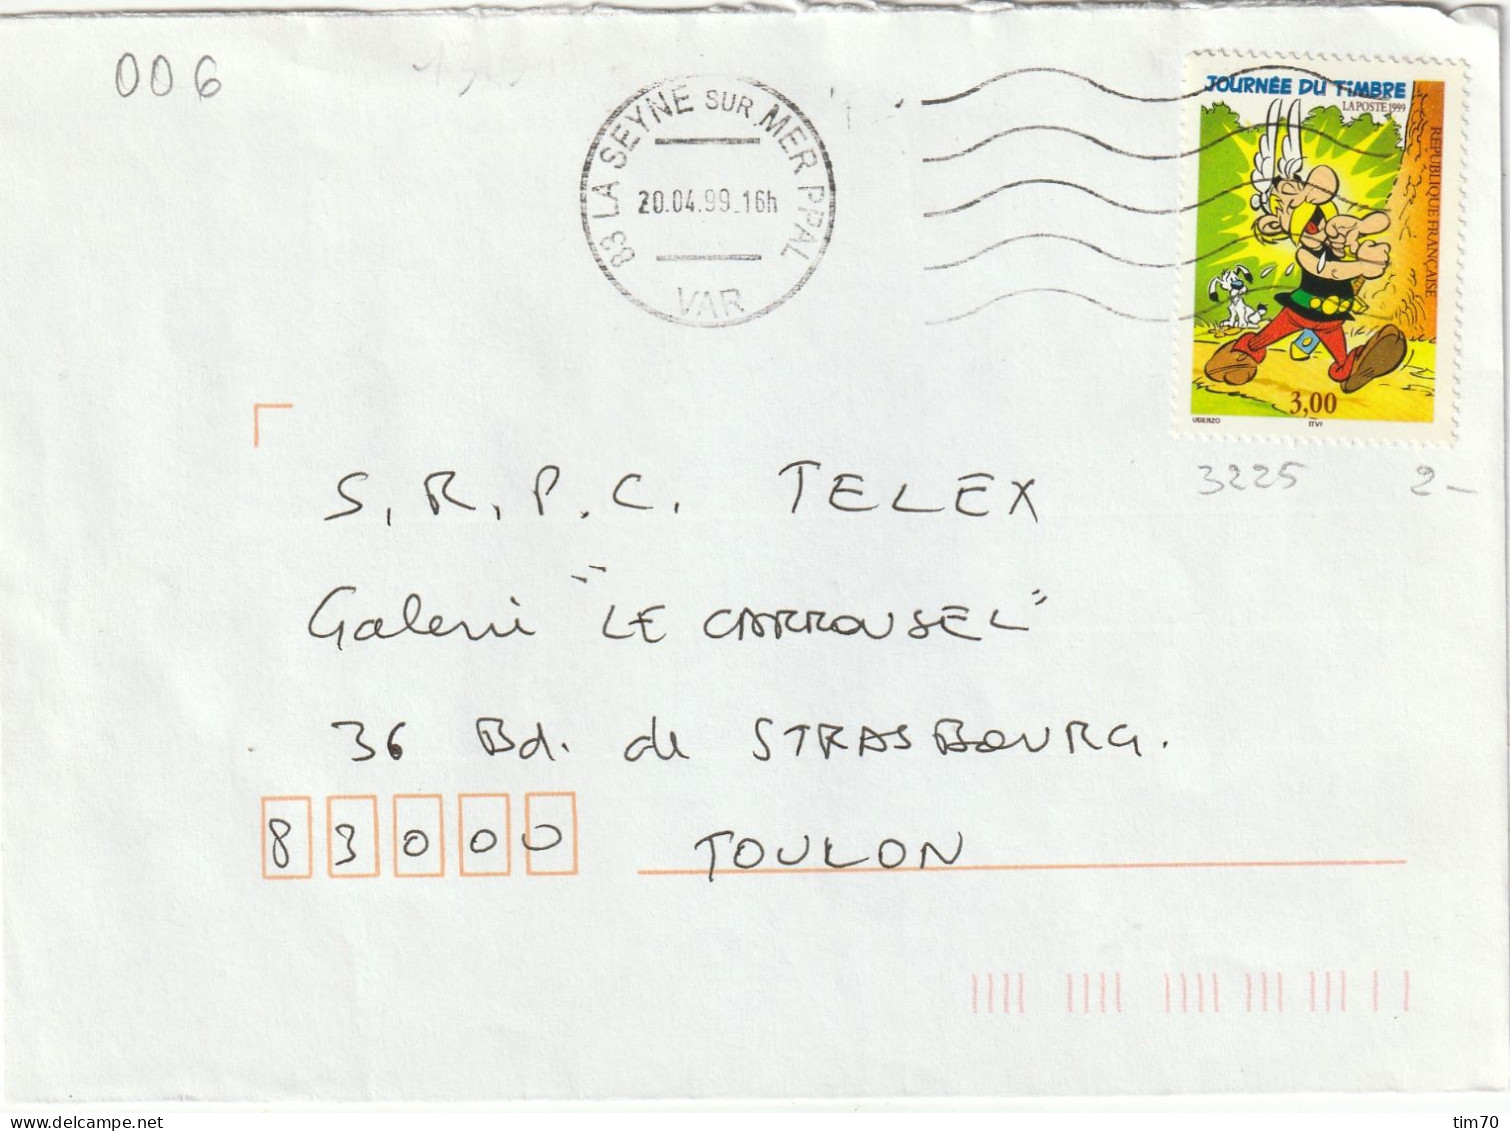 006
83 LA SEYNE SUR MER PPAL
20.04.99_16h
VAR
JOURNÉE DU TIMBRE
LA POSTE 1999
RÉPUBLIQUE FRANÇAISE
3,00
UDERZO ITVF
3225 2-
S.R.P.C. TELEX
Galerie "LE CARROUSEL"
36 Bd. de STRASBOURG.
83000 TOULON
delcampe.net
tim70